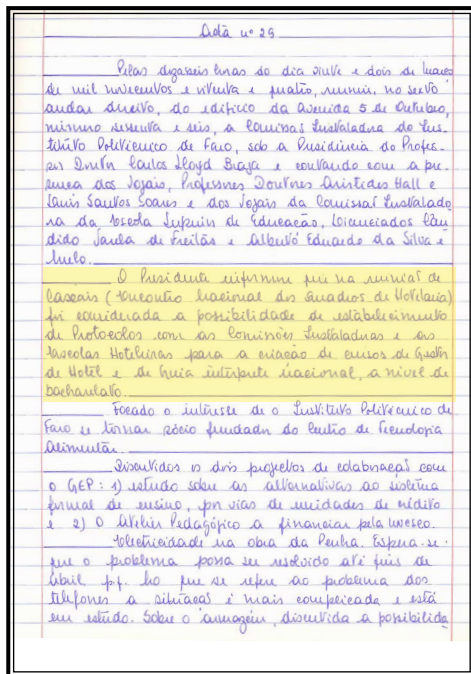 Acta nº 29
Pelas dezasseis horas do dia vinte e dois de Março
de mil novecentos e oitenta e quatro, reuniu, no sexto
andar direito, do edifício da Avenida 5 de Outubro,
número sessenta e seis, a Comissão Instaladora do Ins-
tituto Politécnico de Faro, sob a Presidência do Profes-
sor Doutor Carlos Lloyd Braga e contando com a pre-
sença dos Vogais, Professores Doutores Aristides Hall e
Luís Santos Soares e dos Vogais da Comissão Instalado
ra da Escola Superior de Educação, Licenciados Cân
dido Varela de Freitas e Alberto Eduardo da Silva e
Melo.
O Presidente informou que na reunião de
Cascais (Encontro Nacional dos Quadros de Hotelaria)
foi considerada a possibilidade de estabelecimento
de Protocolos com as Comissões Instaladoras e as
Escolas Hoteleiras para a criação de cursos de Gestor
de Hotel e de Guia intérprete nacional, a nível de
bacharelato.
Focado o interesse de o Instituto Politécnico de
Faro se tornar sócio fundador do Centro de Tecnologia
Alimentar.
Discutidos os dois projectos de colaboração com
o GEP: 1) estudo sobre as alternativas ao sistema
formal de ensino, por vias de unidades de crédito
e 2) O Atelier Pedagógico a financiar pela Unesco.
Electricidade na obra da Penha. Espera-se
que o problema possa ser resolvido até fins de
Abril p.f. No que se refere ao problema dos
telefones a situação é mais complicada e está
em estudo. Sobre o armazém, discutida a possibilida